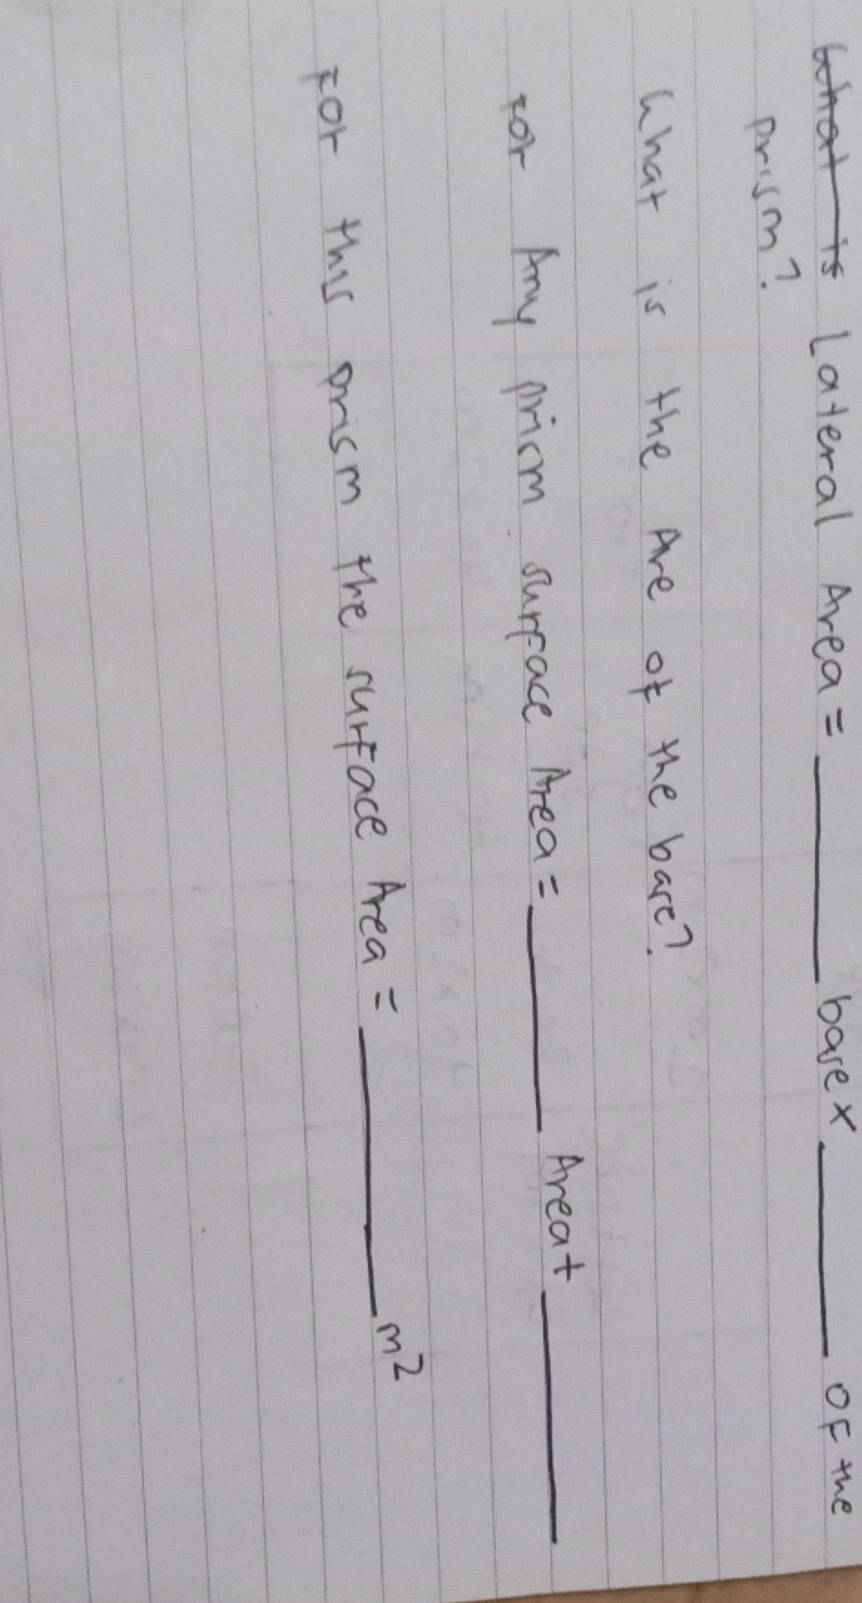 ~~What is~~ Lateral Area = ______ base x ______ OF the
prism?
What is the Are of the base?
For Any prism surface Area = ______ Area + ______
For this prism the surface Area = ______ m²